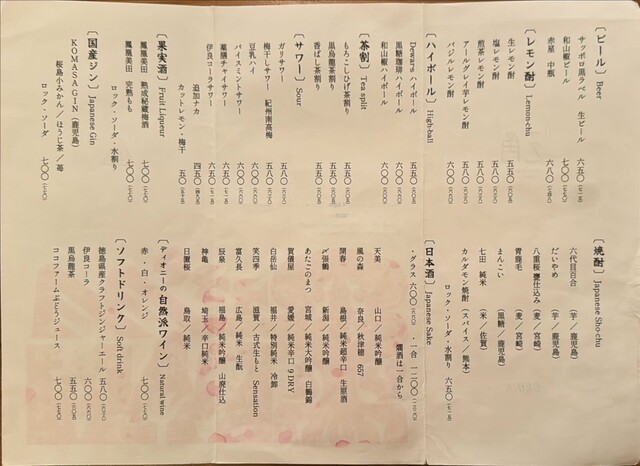 〔ビール〕Beer
サッポロ黒ラベル 生ビール 六五〇
和山椒ビール 七〇〇
赤星 中瓶 六八〇
〔レモン酎〕Lemon-chu
生レモン酎 五五〇
塩レモン酎 五八〇
煎茶レモン酎 五八〇
アールグレイ芋レモン酎 五八〇
バジルレモン酎 六〇〇
〔ハイボール〕High-ball
Dewarsハイボール 五五〇
黒糖珈琲ハイボール 六〇〇
和山椒ハイボール 六〇〇
〔茶割〕Tea split
もろこしひげ茶割り 五五〇
黒烏龍茶割り 五五〇
香ばし茶割り 五五〇
〔サワー〕Sour
ガリサワー 五八〇
梅干しサワー 紀州南高梅 五八〇
豆乳ハイ 五五〇
バイスミントサワー 六〇〇
薬膳チャイサワー 六五〇
伊良コーラサワー 六五〇
追加ナカ 四五〇
カットレモン・梅干 五〇
〔果実酒〕Fruit Liqueur
鳳凰美田 熟成秘蔵梅酒 七〇〇
鳳凰美田 完熟もも 七〇〇
ロック・ソーダ・水割り
〔国産ジン〕Japanese Gin
KOMASA GIN(鹿児島)
桜島小みかん/ほうじ茶/苺
ロック・ソーダ 七〇〇
〔焼酎〕Japanese Sho-chu
六代目百合 (芋/鹿児島)
だいやめ (芋/鹿児島)
八重桜甕仕込み (麦/宮崎)
青鹿毛 (麦/宮崎)
まんこい (黒糖/鹿児島)
七田 純米 (米/佐賀)
カルダモン焼酎 (スパイス/熊本)
ロック・ソーダ・水割り 六五〇
〔日本酒〕Japanese Sake
燗酒は一合から
・グラス 六〇〇 ・一合 一一〇〇
天美 山口/純米吟醸
風の森 奈良/秋津穂 657
開春 島根/純米超辛口 生原酒
〆張鶴 新潟/純米吟醸
あたごのまつ 宮城/純米大吟醸 白鶴錦
賀儀屋 愛媛/純米辛口 9 DRY
白岳仙 福井/特別純米 冷卸
笑四季 滋賀/古式生もと Sensation
富久長 広島/純米 生酛
辰泉 福島/純米吟醸 山廃仕込
神亀 埼玉/辛口純米
日置桜 鳥取/純米
〔ディオニーの自然派ワイン〕Natural wine
赤・白・オレンジ 七〇〇
〔ソフトドリンク〕Soft drink
徳島県産クラフトジンジャーエール 五八〇
伊良コーラ 六〇〇
黒烏龍茶 五五〇
ココファームぶどうジュース 七〇〇